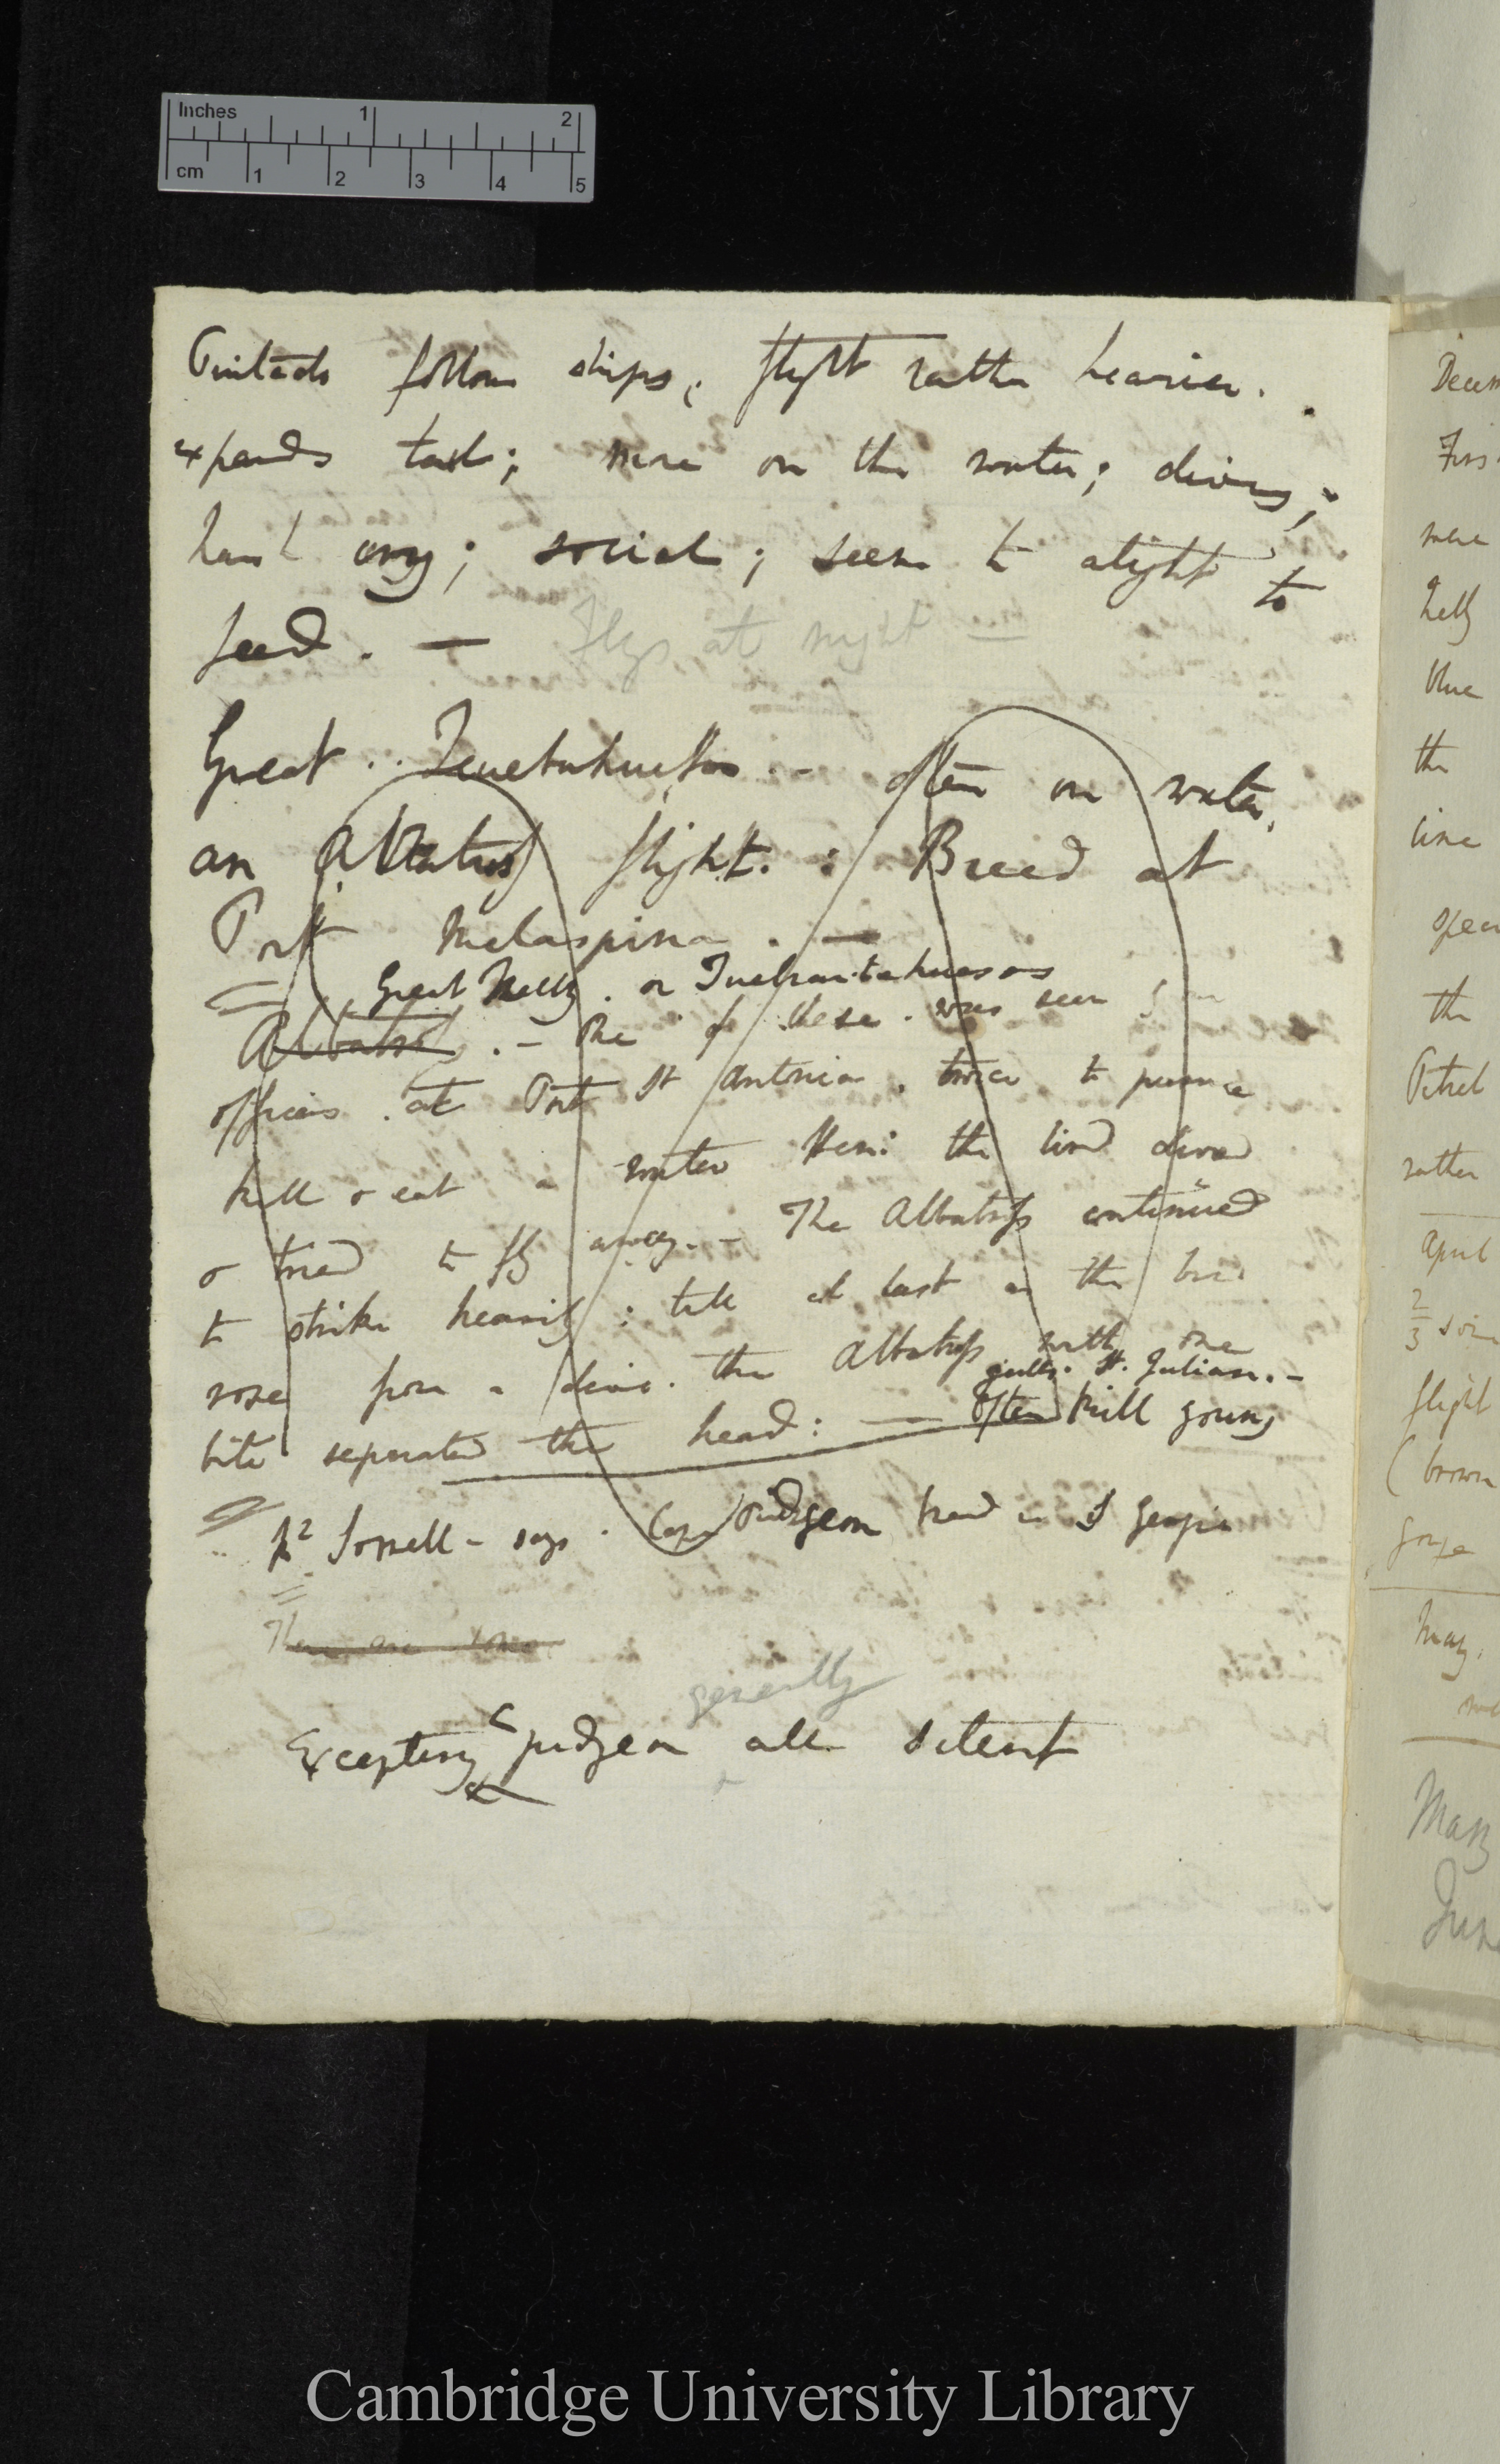 Inches 1 2
cm 1 2 3 4 5
Pintado follow ships; flight rather heavier.
expands tail; more on the water; diving;
harsh cry; social; seem to alight to
feed. — Flys at night —
Great .. — often on water,
an Albatross flight. : Breed at
Port Malaspina. —
Great Nelly. or
Albatross . — One of these. was seen
officers. at Port St Antonio. to pursue
kill & eat a water Hen: the bird dived
& tried to fly away. — The Albatross continued
to strike heavily: till at last as the bird
rose from a dive. the Albatross with one
bite seperated the head: — often kill young
gulls. St. Julian. —
Mr Sorrell — says. Cape Pidgeon breed in S Georgia
There are some
generally
Excepting C pidgeon all silent
Decem
Firs
were
Nelly
blue
the
line
the
Petrel
rather
April
2/3
flight
(brown
May,
May
June
Cambridge University Library